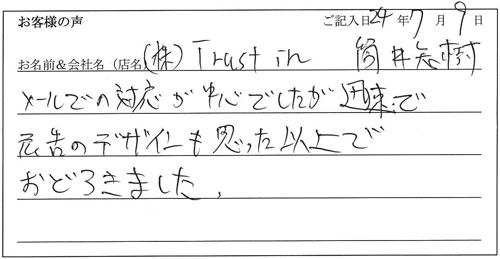 お客様の声 ご記入日 24 年 7 月 9 日
お名前&会社名(店名) (株) Trust in 筒井宏樹
メールでの対応が中心でしたが迅速で
広告のデザインも思った以上で
おどろきました。